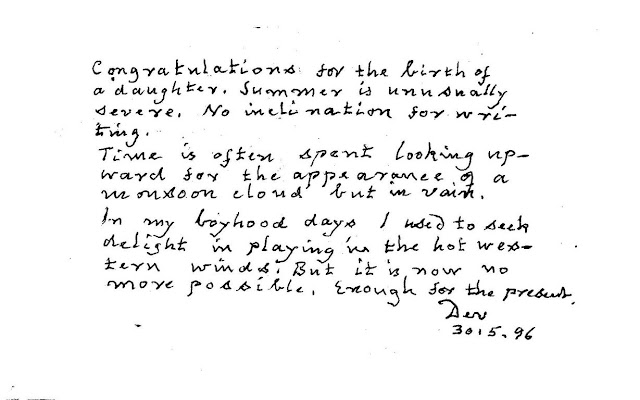 Congratulations for the birth of
a daughter. Summer is unusually
severe. No inclination for wri-
ting.
Time is often spent looking up-
ward for the appearance of a
monsoon cloud but in vain.
In my boyhood days I used to seek
delight in playing in the hot wes-
tern winds. But it is now no
more possible. Enough for the present.
Dev
30.5.96